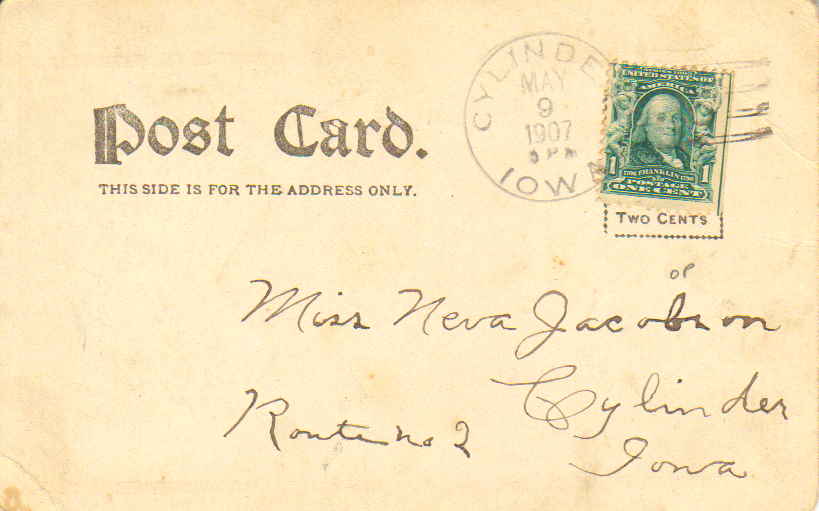 CYLINDE
MAY
9
1907
PM
IOWA
UNITED STATES OF
AMERICA
1 FRANKLIN 1
POSTAGE
ONE CENT
TWO CENTS
Post Card.
THIS SIDE IS FOR THE ADDRESS ONLY.
Miss Neva Jacobson
Cylinder
Route no 2
Iowa